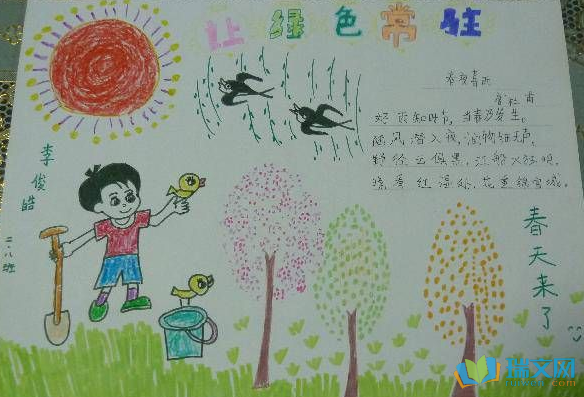 让绿色常驻
春夜喜雨
唐 杜甫
好雨知时节，当春乃发生。
随风潜入夜，润物细无声。
野径云俱黑，江船火独明。
晓看红湿处，花重锦官城。
李俊皓
二.八班
春天来了
瑞文网